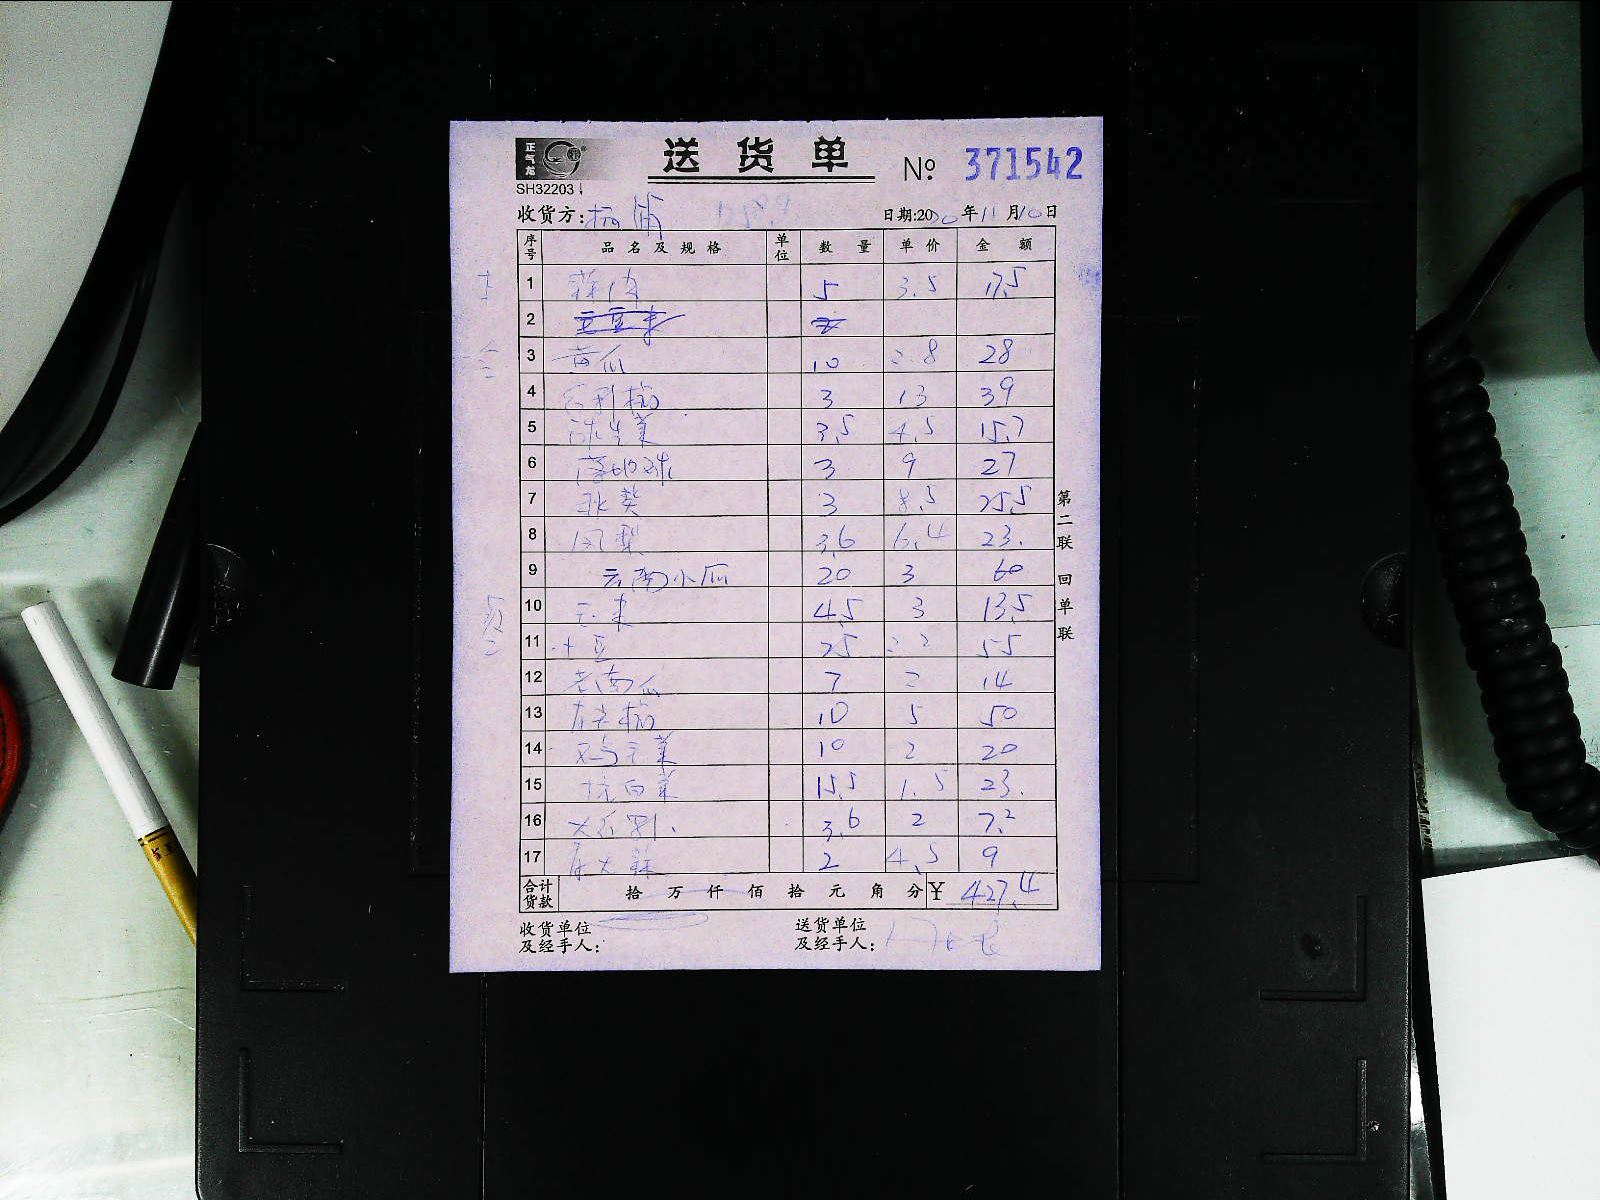 正气龙
送货单 № 371542
SH32203
收货方: 杨浦 日期:2020年11月10日
序号 品名及规格 单位 数量 单价 金额
1 蒜肉 5 3.5 17.5
2
3 黄瓜 10 2.8 28
4 杏利梗 3 13 39
5 球生菜 3.5 4.5 15.7
6 3 9 27
7 秋葵 3 8.5 25.5
8 凤梨 3.6 6.4 23.
9 云南小瓜 20 3 60
10 4.5 3 13.5
11 土豆 25 2.2 55
12 老南瓜 7 2 14
13 10 5 50
14 鸡毛菜 10 2 20
15 杭白菜 15.5 1.5 23.
16 3.6 2 7.2
17 2 4.5 9
合计货款 拾 万 仟 佰 拾 元 角 分 ¥ 427.4
收货单位及经手人: 送货单位及经手人:
第二联 回单联